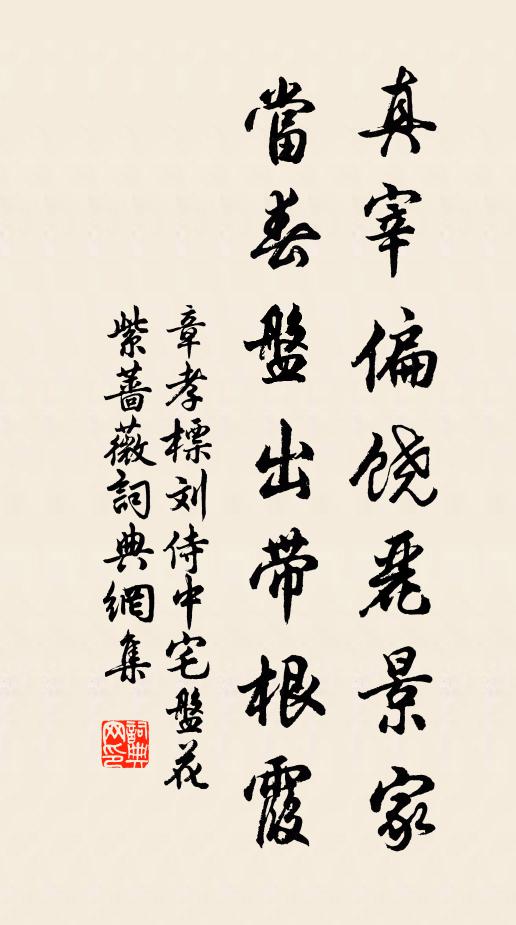 真宰偏饶麗景家
當春盤出带根霞
章孝標刘侍中宅盤花
紫薔薇詞典網集
詞典网印